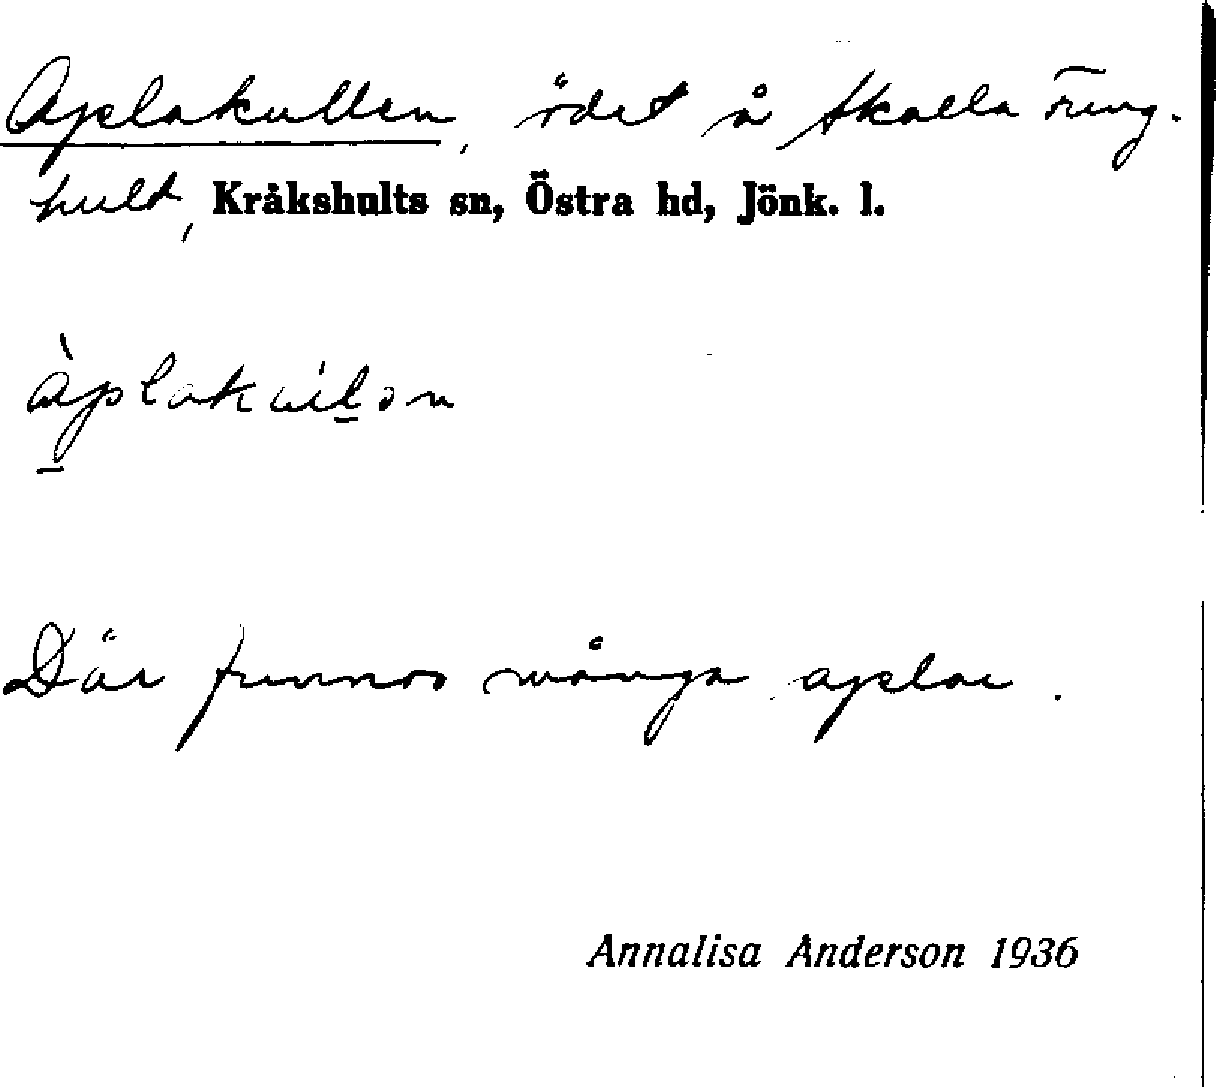 Aplakullen, ödet å Skalla Fung-
hult, Kråkshults sn, Östra hd, Jönk. l.
àplakúlən
Där funnos många aplar.
Annalisa Anderson 1936